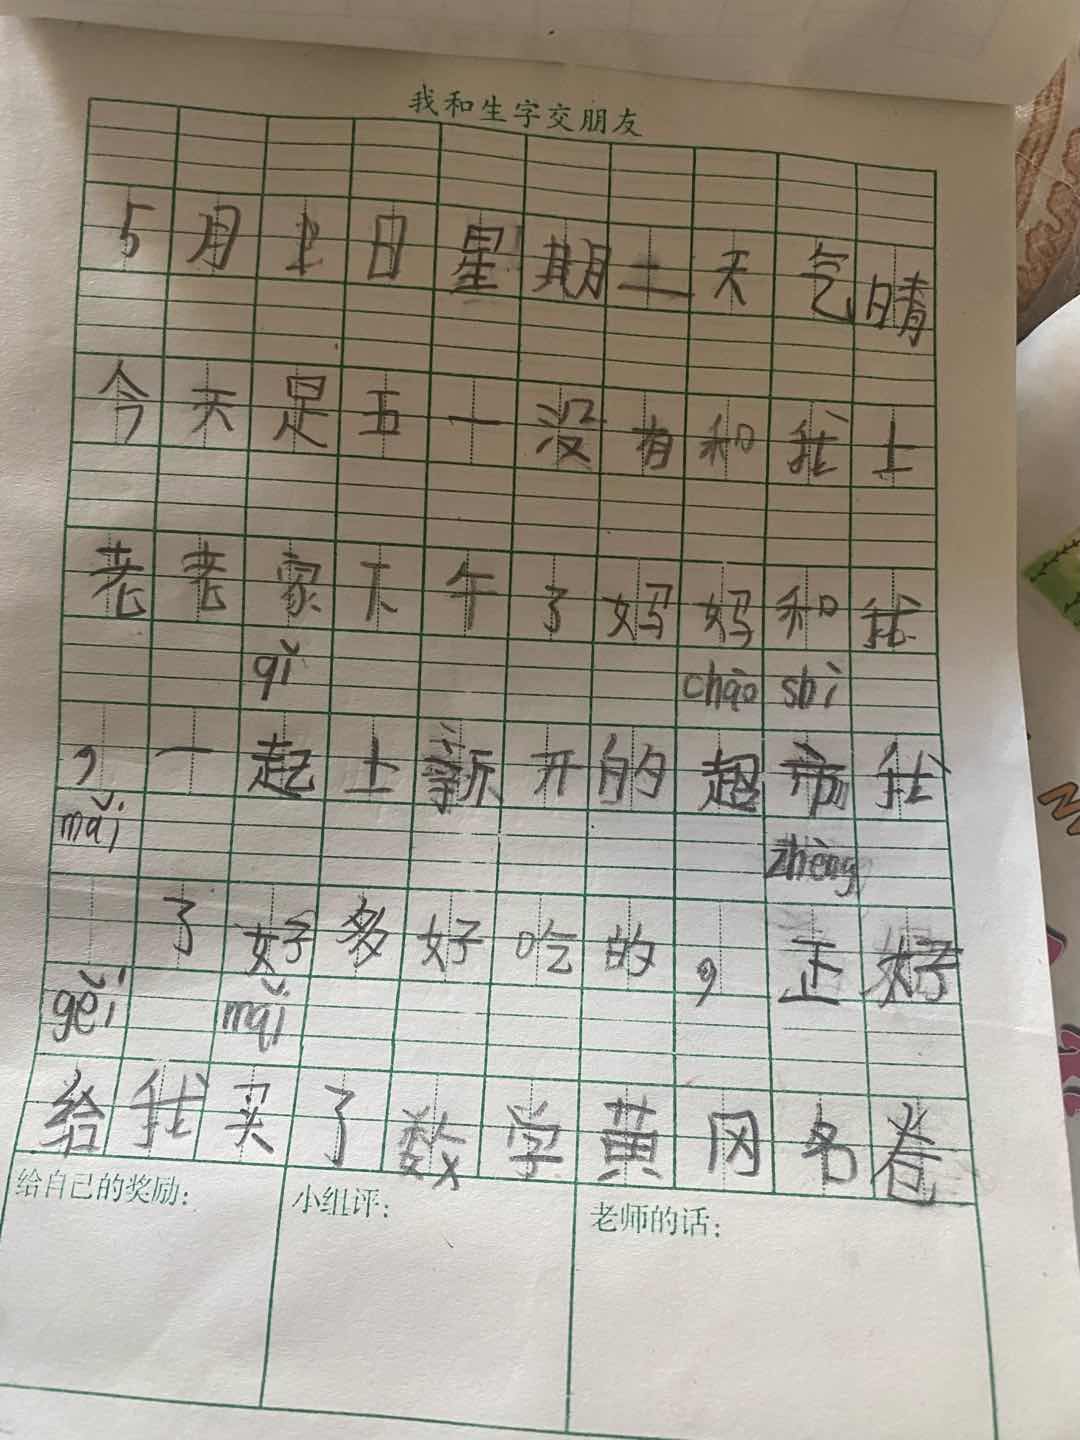 我和生字交朋友
5月1日星期二天气晴
今天是五一没有和我上
老老家下午了妈妈和我
qǐ chāo shì
，一起上新开的超市我
mǎi zhèng
了好多好吃的，正好
gěi mǎi
给我买了数学黄冈名卷
给自己的奖励：
小组评：
老师的话：